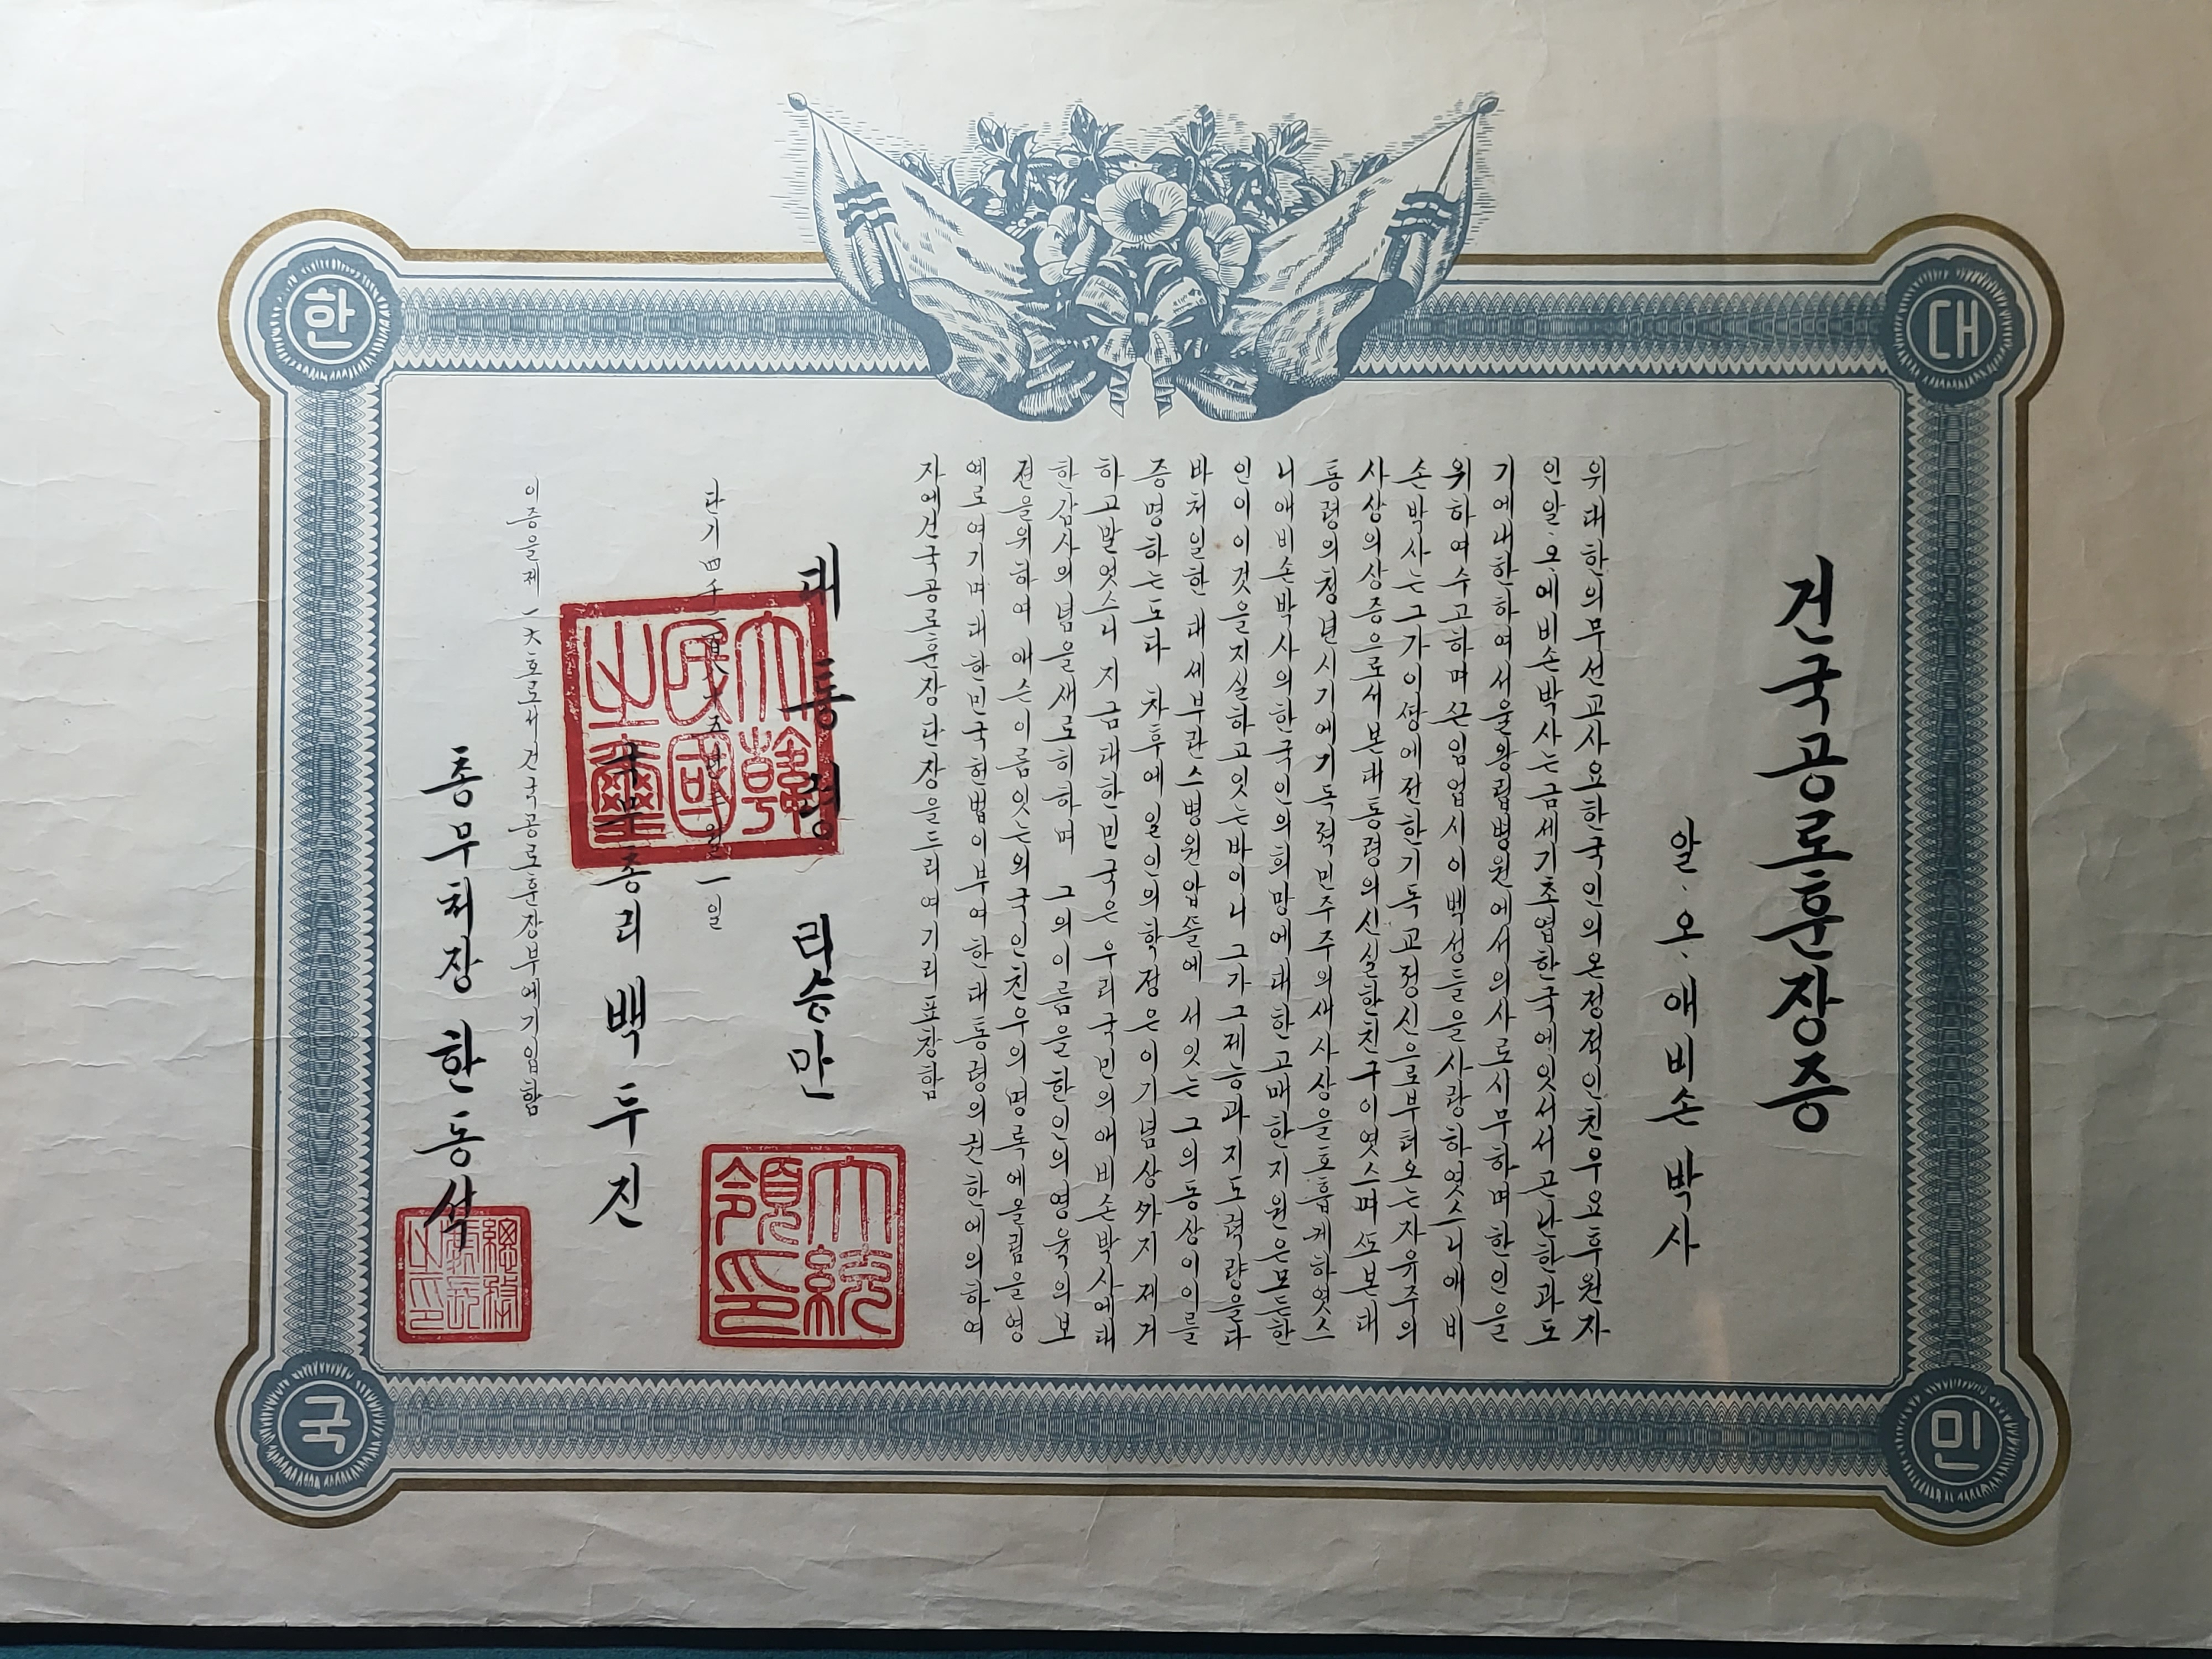 대
한
민
국
건국공로훈장증
알、오、애비손 박사
위대한의무선교사요한국인의온정적인친우요후원자
인알、오、에비손박사는금세기초엽한국에잇서서곤난한과도
기에대한하여서울왕립병원에서의사로시무하며한인을
위하여수고하며쉰임업시이백성들을사랑하엿스니애비
손박사는그가이셩에전한기독교정신으로부터오는자유주의
사상의상증으로서본대통령의신실한친구이엿스며또본대
통령의청년시기에기독력민주주의새사상을호흡케하엿스
니애비손박사의한국인의희망에대한고매한지원은모든한
인이이것을지실하고잇는바이니그가그제능과지도력량을다
바처일한대세부란스병원압뜰에서잇는그의동상이이를
증명하는도다 차후에일인의학정은이기념상까지제거
하고말엇스니지금대한민국은우리국민의애비손박사에대
한감사의념을새로히하며 그의이름을한인의영육의보
젼을위하여애슨이름잇는의국인친우의명록에올림을영
예로여기며대한민국헌법이부여한대통령의권한에의하여
자에건국공로훈장단장을드리여기리표창함
대통령 리승만
단기四千二百八十五년三월一일
국무총리 백두진
이증을제一六호로서건국공로훈장부에기입함
총무처장 한동석
大韓民國之璽
大統領印
總務處長之印